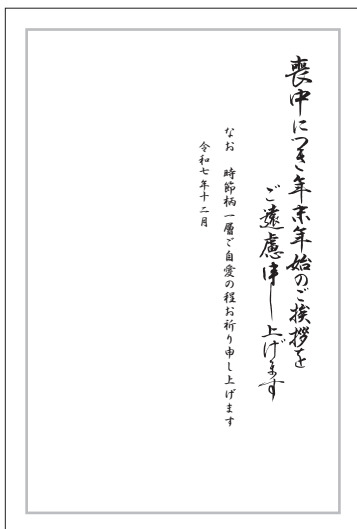 喪中につき年末年始のご挨拶を
ご遠慮申し上げます
なお　時節柄一層ご自愛の程お祈り申し上げます
令和七年十二月